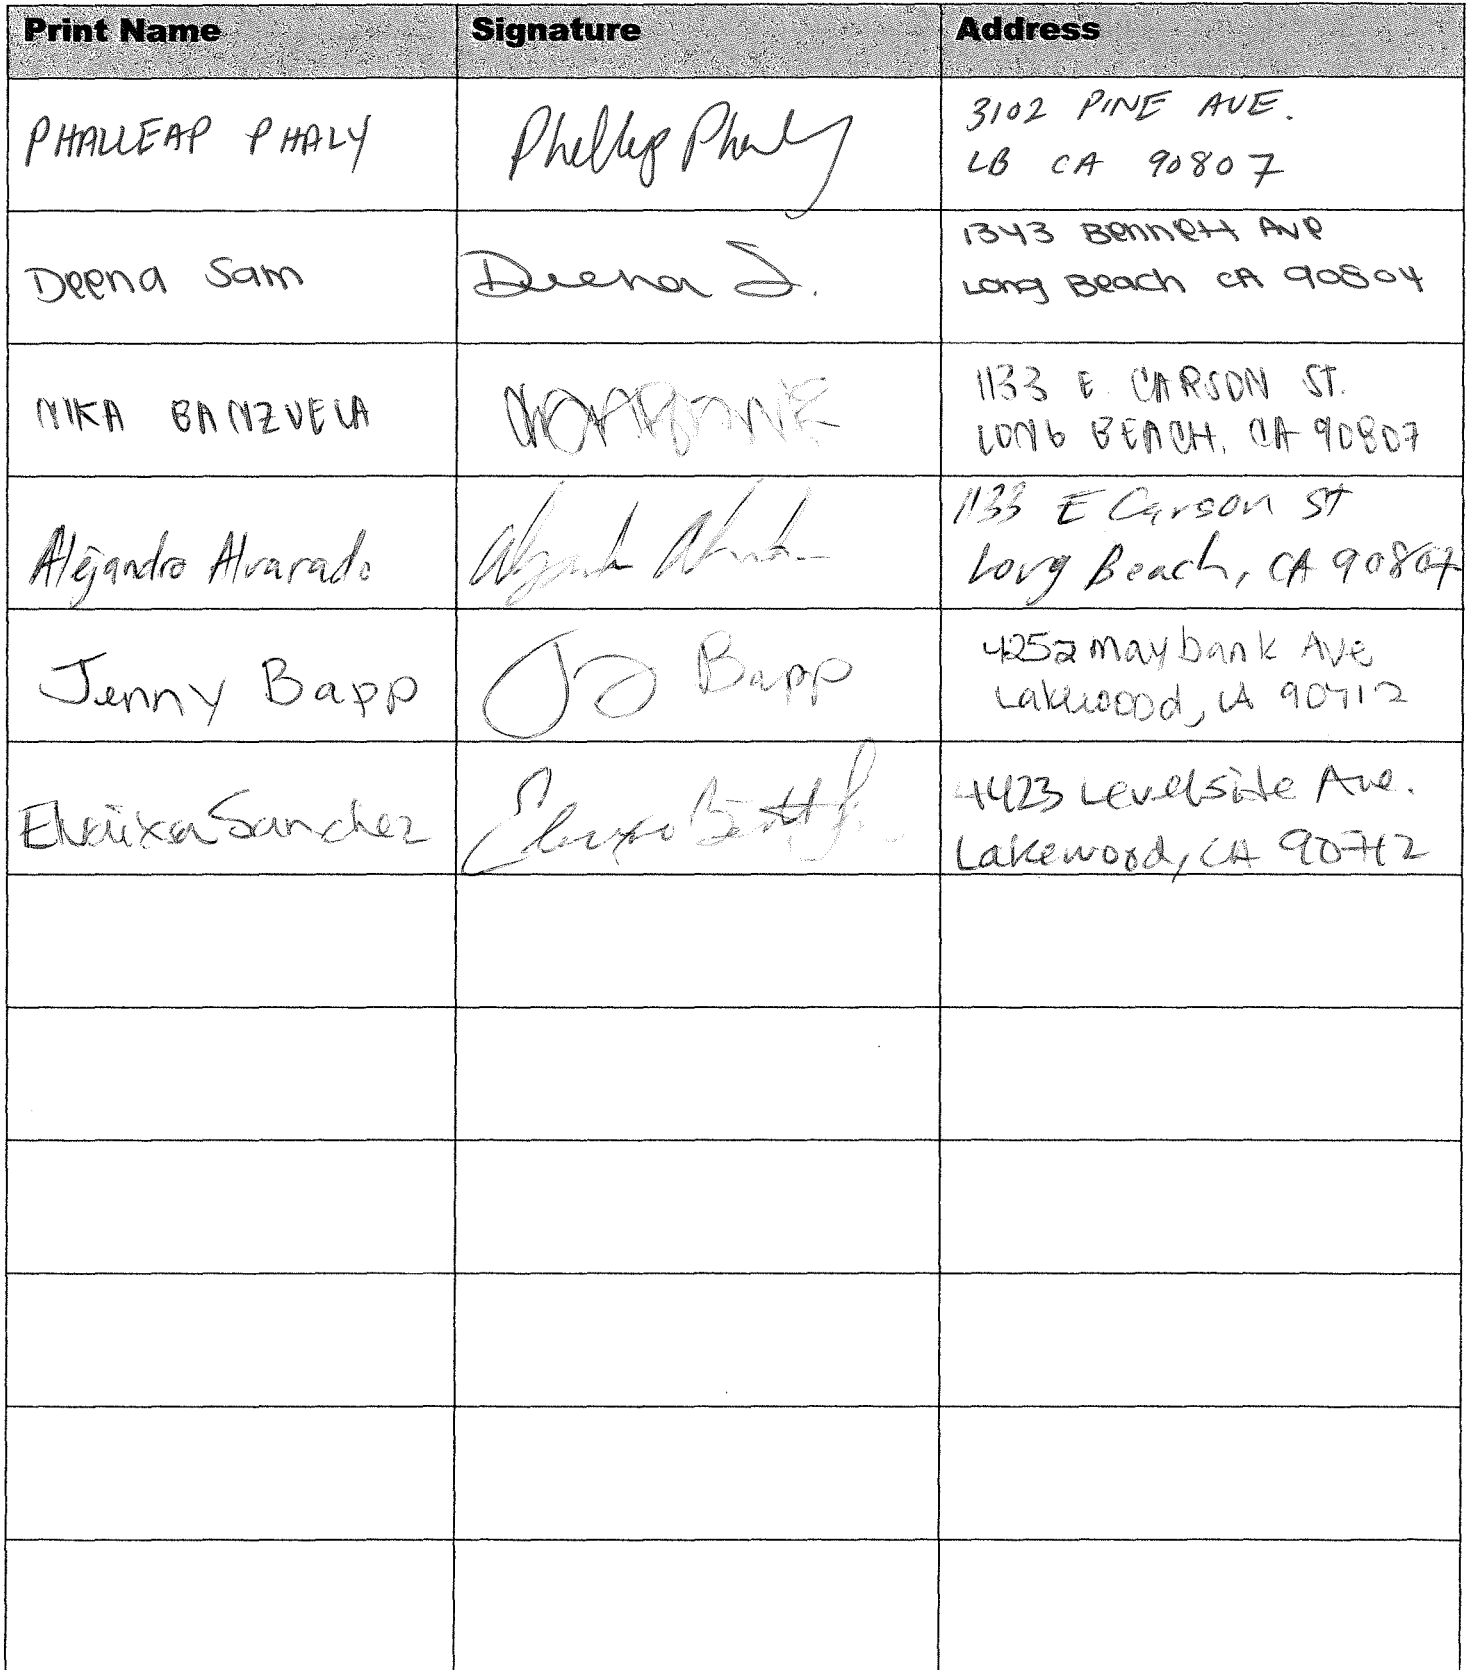 Print Name Signature Address
PHALLEAP PHALY Phillip Phaly 3102 PINE AVE.
LB CA 90807
Deena Sam Deena S. 1343 Bennett Ave
Long Beach CA 90804
NIKA BANZUELA 1133 E. CARSON ST.
LONG BEACH, CA 90807
Alejandro Alvarado 1133 E Carson St
Long Beach, CA 90807
Jenny Bapp J Bapp 4252 maybank Ave
Lakewood, CA 90712
Sanchez 4423 Levelside Ave.
Lakewood, CA 90712